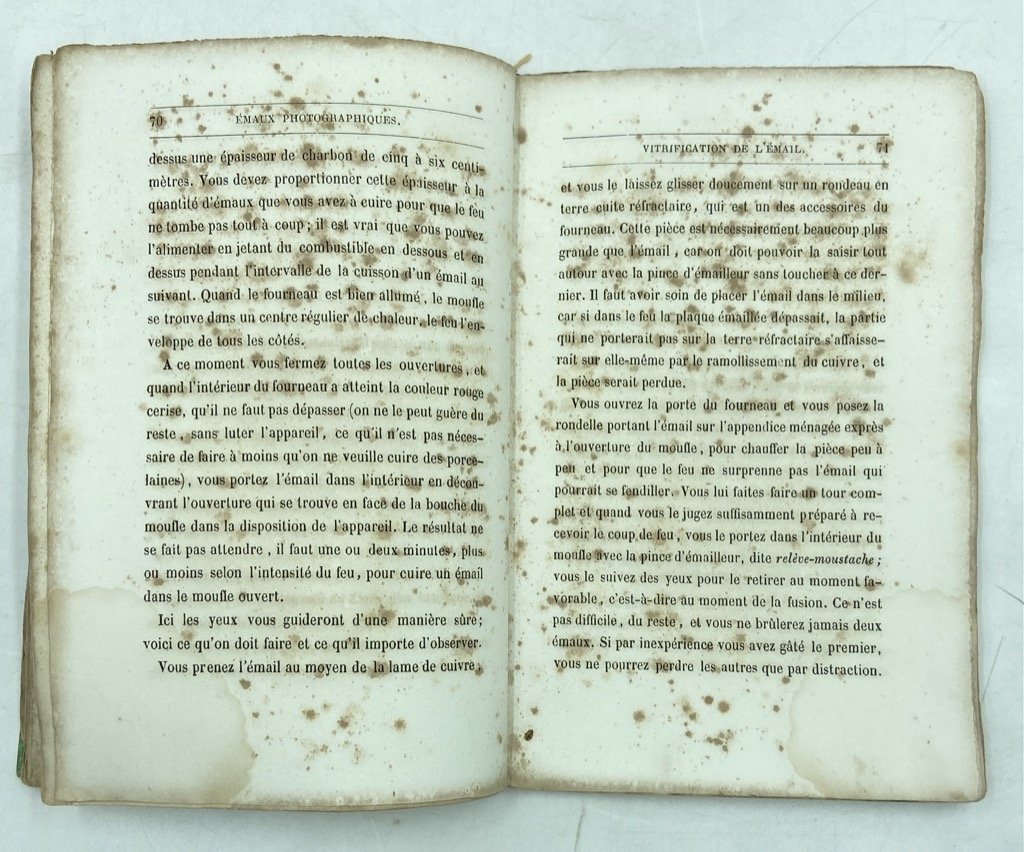 70 ÉMAUX PHOTOGRAPHIQUES.
dessus une épaisseur de charbon de cinq à six centi-
mètres. Vous devez proportionner cette épaisseur à la
quantité d'émaux que vous avez à cuire pour que le feu
ne tombe pas tout à coup; il est vrai que vous pouvez
l'alimenter en jetant du combustible en dessous et en
dessus pendant l'intervalle de la cuisson d'un émail au
suivant. Quand le fourneau est bien allumé, le moufle
se trouve dans un centre régulier de chaleur, le feu l'en-
veloppe de tous les côtés.
A ce moment vous fermez toutes les ouvertures, et
quand l'intérieur du fourneau a atteint la couleur rouge
cerise, qu'il ne faut pas dépasser (on ne le peut guère du
reste, sans luter l'appareil, ce qu'il n'est pas néces-
saire de faire à moins qu'on ne veuille cuire des porce-
laines), vous portez l'émail dans l'intérieur en décou-
vrant l'ouverture qui se trouve en face de la bouche du
moufle dans la disposition de l'appareil. Le résultat ne
se fait pas attendre, il faut une ou deux minutes, plus
ou moins selon l'intensité du feu, pour cuire un émail
dans le moufle ouvert.
Ici les yeux vous guideront d'une manière sûre;
voici ce qu'on doit faire et ce qu'il importe d'observer.
Vous prenez l'émail au moyen de la lame de cuivre,
VITRIFICATION DE L'ÉMAIL. 71
et vous le laissez glisser doucement sur un rondeau en
terre cuite réfractaire, qui est un des accessoires du
fourneau. Cette pièce est nécessairement beaucoup plus
grande que l'émail, car on doit pouvoir la saisir tout
autour avec la pince d'émailleur sans toucher à ce der-
nier. Il faut avoir soin de placer l'émail dans le milieu,
car si dans le feu la plaque émaillée dépassait, la partie
qui ne porterait pas sur la terre réfractaire s'affaisse-
rait sur elle-même par le ramollissement du cuivre, et
la pièce serait perdue.
Vous ouvrez la porte du fourneau et vous posez la
rondelle portant l'émail sur l'appendice ménagée exprès
à l'ouverture du moufle, pour chauffer la pièce peu à
peu et pour que le feu ne surprenne pas l'émail qui
pourrait se fendiller. Vous lui faites faire un tour com-
plet et quand vous le jugez suffisamment préparé à re-
cevoir le coup de feu, vous le portez dans l'intérieur du
moufle avec la pince d'émailleur, dite relève-moustache;
vous le suivez des yeux pour le retirer au moment fa-
vorable, c'est-à-dire au moment de la fusion. Ce n'est
pas difficile, du reste, et vous ne brûlerez jamais deux
émaux. Si par inexpérience vous avez gâté le premier,
vous ne pourrez perdre les autres que par distraction.